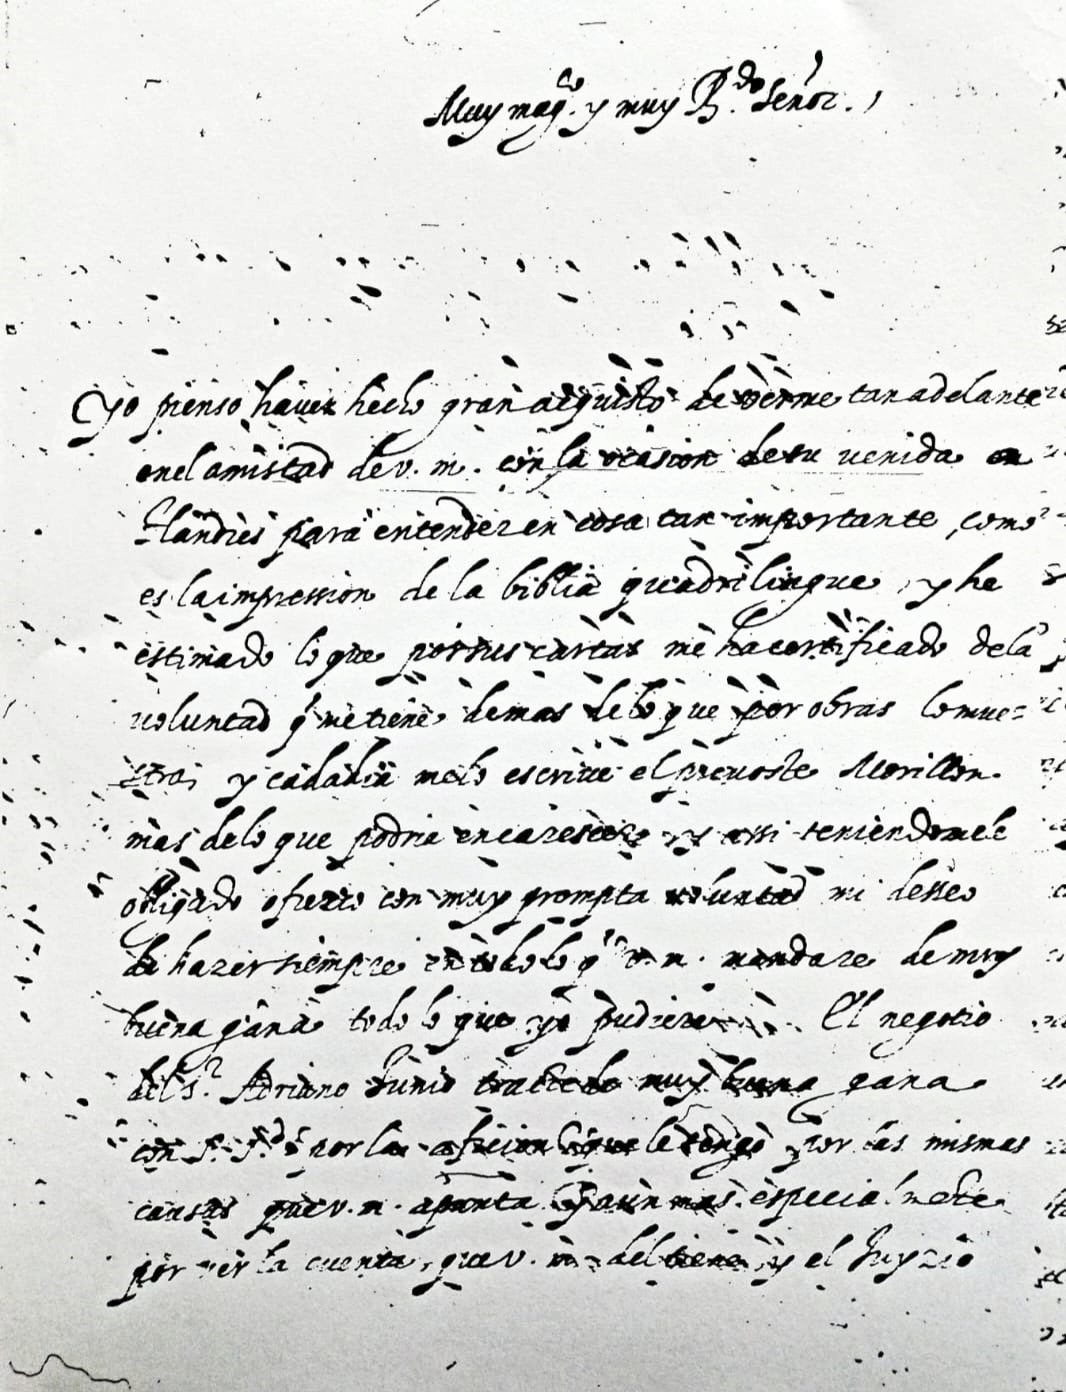 Muy mag.co y muy R.do Señor.
Yo pienso haver hecho gran acquisto de verme tan adelante
en el amistad de v. m. con la ocasion de su venida en
Flandres para entender en cosa tan importante, como
es la impression de la biblia quadrilingue, y he
estimado lo que por sus cartas me ha certificado de la
voluntad q me tiene, demas de lo que por obras lo mue=
stra, y cada dia me lo escrive el prevoste Morillon
mas de lo que podria encarescer, y assi teniendome le
obligado ofrezco con muy prompta voluntad mi desseo
de hazer siempre en todo lo q v. m. mandare de muy
buena gana todo lo que yo pudiere. El negotio
del s.r Adriano Junio tracte de muy buena gana
con S. S. por la aficion que le tengo por las mismas
causas que v. m. apunta y aun mas especialmete
por ver la cuenta, que v. m. del tiene, y el Juyzio